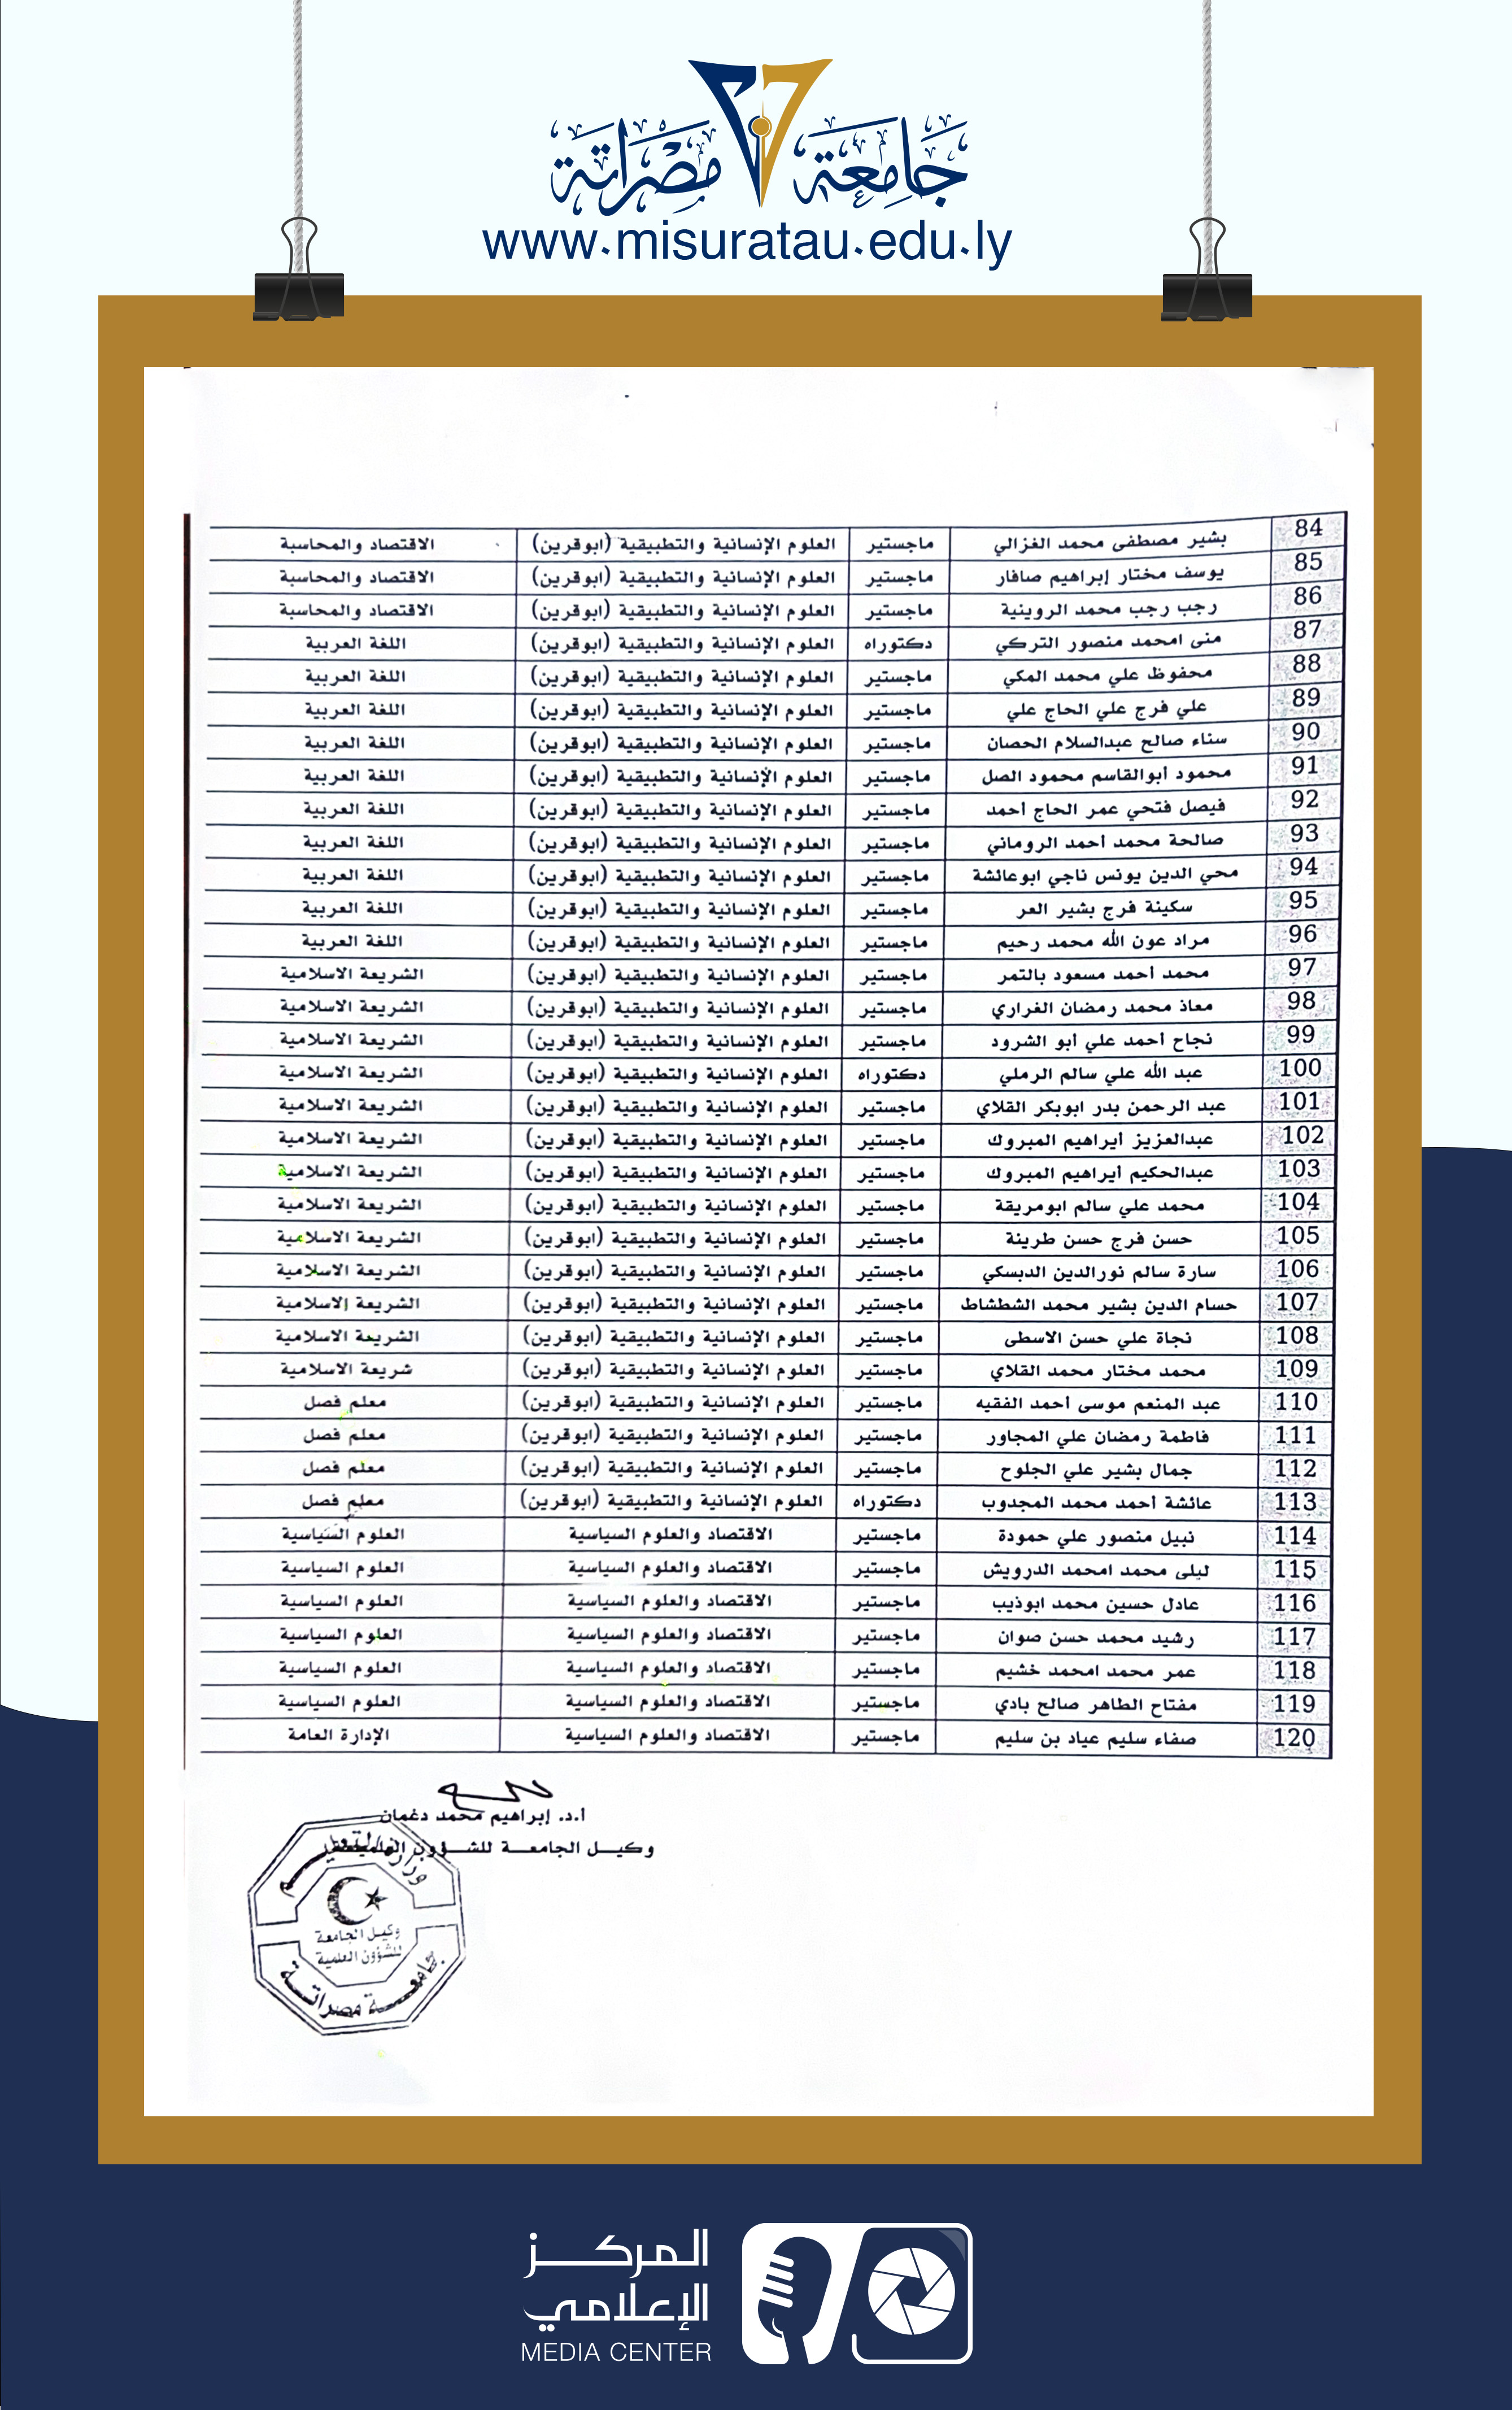 جامعة مصراتة
www.misuratau.edu.ly
84 بشير مصطفى محمد الغزالي ماجستير العلوم الإنسانية والتطبيقية (ابوقرين) الاقتصاد والمحاسبة
85 يوسف مختار إبراهيم صافار ماجستير العلوم الإنسانية والتطبيقية (ابوقرين) الاقتصاد والمحاسبة
86 رجب رجب محمد الروينية ماجستير العلوم الإنسانية والتطبيقية (ابوقرين) الاقتصاد والمحاسبة
87 منى امحمد منصور التركي دكتوراه العلوم الإنسانية والتطبيقية (ابوقرين) اللغة العربية
88 محفوظ علي محمد المكي ماجستير العلوم الإنسانية والتطبيقية (ابوقرين) اللغة العربية
89 علي فرج علي الحاج علي ماجستير العلوم الإنسانية والتطبيقية (ابوقرين) اللغة العربية
90 سناء صالح عبدالسلام الحصان ماجستير العلوم الإنسانية والتطبيقية (ابوقرين) اللغة العربية
91 محمود أبوالقاسم محمود الصل ماجستير العلوم الإنسانية والتطبيقية (ابوقرين) اللغة العربية
92 فيصل فتحي عمر الحاج أحمد ماجستير العلوم الإنسانية والتطبيقية (ابوقرين) اللغة العربية
93 صالحة محمد أحمد الروماني ماجستير العلوم الإنسانية والتطبيقية (ابوقرين) اللغة العربية
94 محي الدين يونس ناجي ابوعائشة ماجستير العلوم الإنسانية والتطبيقية (ابوقرين) اللغة العربية
95 سكينة فرج بشير العر ماجستير العلوم الإنسانية والتطبيقية (ابوقرين) اللغة العربية
96 مراد عون الله محمد رحيم ماجستير العلوم الإنسانية والتطبيقية (ابوقرين) اللغة العربية
97 محمد أحمد مسعود بالتمر ماجستير العلوم الإنسانية والتطبيقية (ابوقرين) الشريعة الاسلامية
98 معاذ محمد رمضان الغراري ماجستير العلوم الإنسانية والتطبيقية (ابوقرين) الشريعة الاسلامية
99 نجاح أحمد علي أبو الشرود ماجستير العلوم الإنسانية والتطبيقية (ابوقرين) الشريعة الاسلامية
100 عبد الله علي سالم الرملي دكتوراه العلوم الإنسانية والتطبيقية (ابوقرين) الشريعة الاسلامية
101 عبد الرحمن بدر ابوبكر القلاي ماجستير العلوم الإنسانية والتطبيقية (ابوقرين) الشريعة الاسلامية
102 عبدالعزيز أبراهيم المبروك ماجستير العلوم الإنسانية والتطبيقية (ابوقرين) الشريعة الاسلامية
103 عبدالحكيم أبراهيم المبروك ماجستير العلوم الإنسانية والتطبيقية (ابوقرين) الشريعة الاسلامية
104 محمد علي سالم ابومريقة ماجستير العلوم الإنسانية والتطبيقية (ابوقرين) الشريعة الاسلامية
105 حسن فرج حسن طرينة ماجستير العلوم الإنسانية والتطبيقية (ابوقرين) الشريعة الاسلامية
106 سارة سالم نورالدين الدبسكي ماجستير العلوم الإنسانية والتطبيقية (ابوقرين) الشريعة الاسلامية
107 حسام الدين بشير محمد الشطشاط ماجستير العلوم الإنسانية والتطبيقية (ابوقرين) الشريعة الاسلامية
108 نجاة علي حسن الاسطى ماجستير العلوم الإنسانية والتطبيقية (ابوقرين) الشريعة الاسلامية
109 محمد مختار محمد القلاي ماجستير العلوم الإنسانية والتطبيقية (ابوقرين) شريعة الاسلامية
110 عبد المنعم موسى أحمد الفقيه ماجستير العلوم الإنسانية والتطبيقية (ابوقرين) معلم فصل
111 فاطمة رمضان علي المجاور ماجستير العلوم الإنسانية والتطبيقية (ابوقرين) معلم فصل
112 جمال بشير علي الجلوح ماجستير العلوم الإنسانية والتطبيقية (ابوقرين) معلم فصل
113 عائشة أحمد محمد المجدوب دكتوراه العلوم الإنسانية والتطبيقية (ابوقرين) معلم فصل
114 نبيل منصور علي حمودة ماجستير الاقتصاد والعلوم السياسية العلوم السياسية
115 ليلى محمد امحمد الدرويش ماجستير الاقتصاد والعلوم السياسية العلوم السياسية
116 عادل حسين محمد ابوذيب ماجستير الاقتصاد والعلوم السياسية العلوم السياسية
117 رشيد محمد حسن صوان ماجستير الاقتصاد والعلوم السياسية العلوم السياسية
118 عمر محمد امحمد خشيم ماجستير الاقتصاد والعلوم السياسية العلوم السياسية
119 مفتاح الطاهر صالح بادي ماجستير الاقتصاد والعلوم السياسية العلوم السياسية
120 صفاء سليم عياد بن سليم ماجستير الاقتصاد والعلوم السياسية الإدارة العامة
أ.د. إبراهيم محمد دغمان
وكيـــل الجامعـــة للشـــؤون العلميـــة
وزارة التعليم
وكيل الجامعة
للشؤون العلمية
جامعة مصراتة
المركز
الإعلامي
MEDIA CENTER